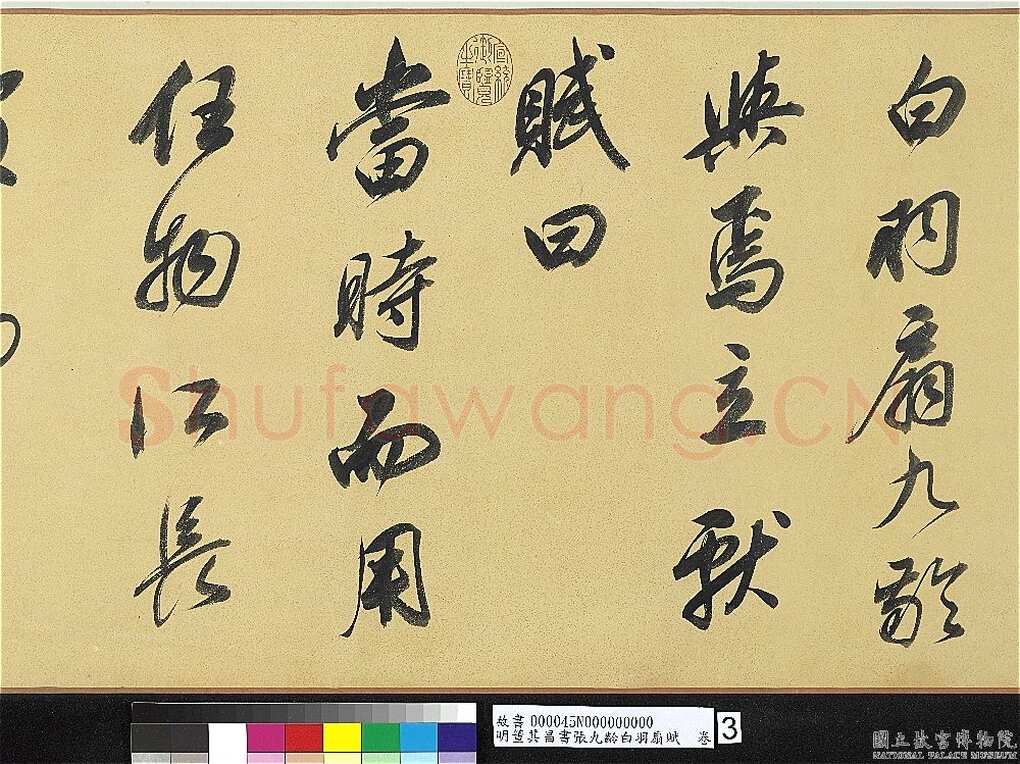 白羽扇九齡
與焉立獻
賦曰
當時而用
任物所長
宣統御覽之寶
Shufawang.CN
故書 000045N000000000
明董其昌書張九齡白羽扇賦 卷 3
國立故宮博物院
NATIONAL PALACE MUSEUM